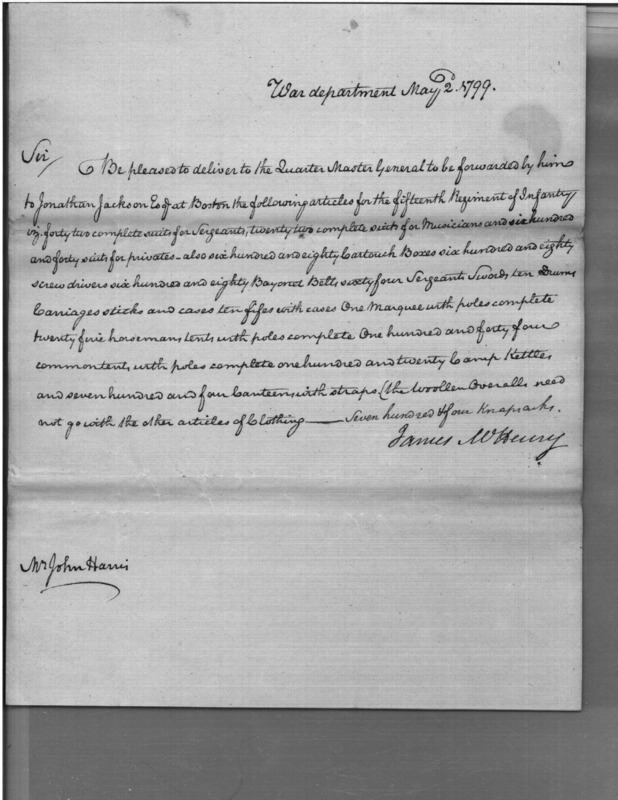 War department May 2d. 1799.
Sir/ Be pleased to deliver to the Quarter Master General to be forwarded by him
to Jonathan Jackson Esqr at Boston the following articles for the fifteenth Regiment of Infantry
viz. forty two complete suits for Sergeants, twenty two complete suits for Musicians and six hundred
and forty suits for privates - also six hundred and eighty Cartouch Boxes six hundred and eighty
screw drivers six hundred and eighty Bayonet Belts sixty four Sergeants Swords ten Drums
Carriages sticks and cases ten fifes with cases One Marquee with poles complete
twenty five horsemans tents with poles complete One hundred and forty four
common tents with poles complete one hundred and twenty Camp Kettles
and seven hundred and four Canteens with straps. (the Woollen Overalls need
not go with the other articles of Clothing — Seven hundred & four Knapsacks.
James McHenry
Mr John Harris